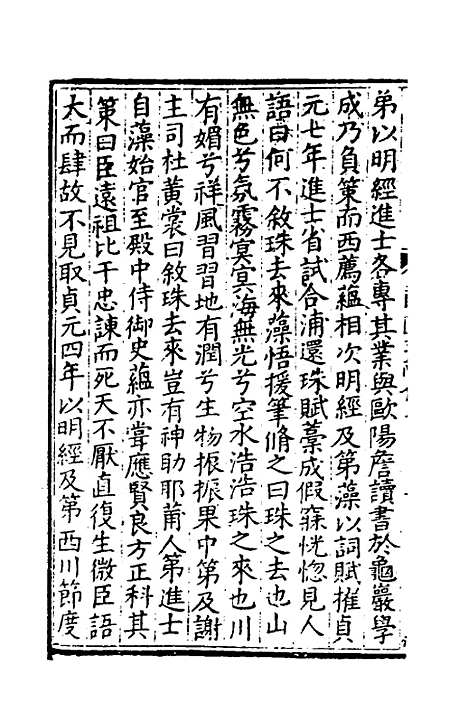 弟以明經進士各專其業與歐陽詹讀書於龜巖學
成乃負策而西薦蘊相次明經及第藻以詞賦擢貞
元七年進士省試合浦還珠賦藁成假寐恍惚見人
語曰何不敘珠去來藻悟援筆脩之曰珠之去也山
無色兮氛霧冥冥海無光兮空水浩浩珠之來也川
有媚兮祥風習習地有潤兮生物振振果中第及謝
主司杜黃裳曰敘珠去來豈有神助耶莆人第進士
自藻始官至殿中侍御史蘊亦甞應賢良方正科其
策曰臣遠祖比干忠諫而死天不厭直復生微臣語
大而肆故不見取貞元四年以明經及第西川節度